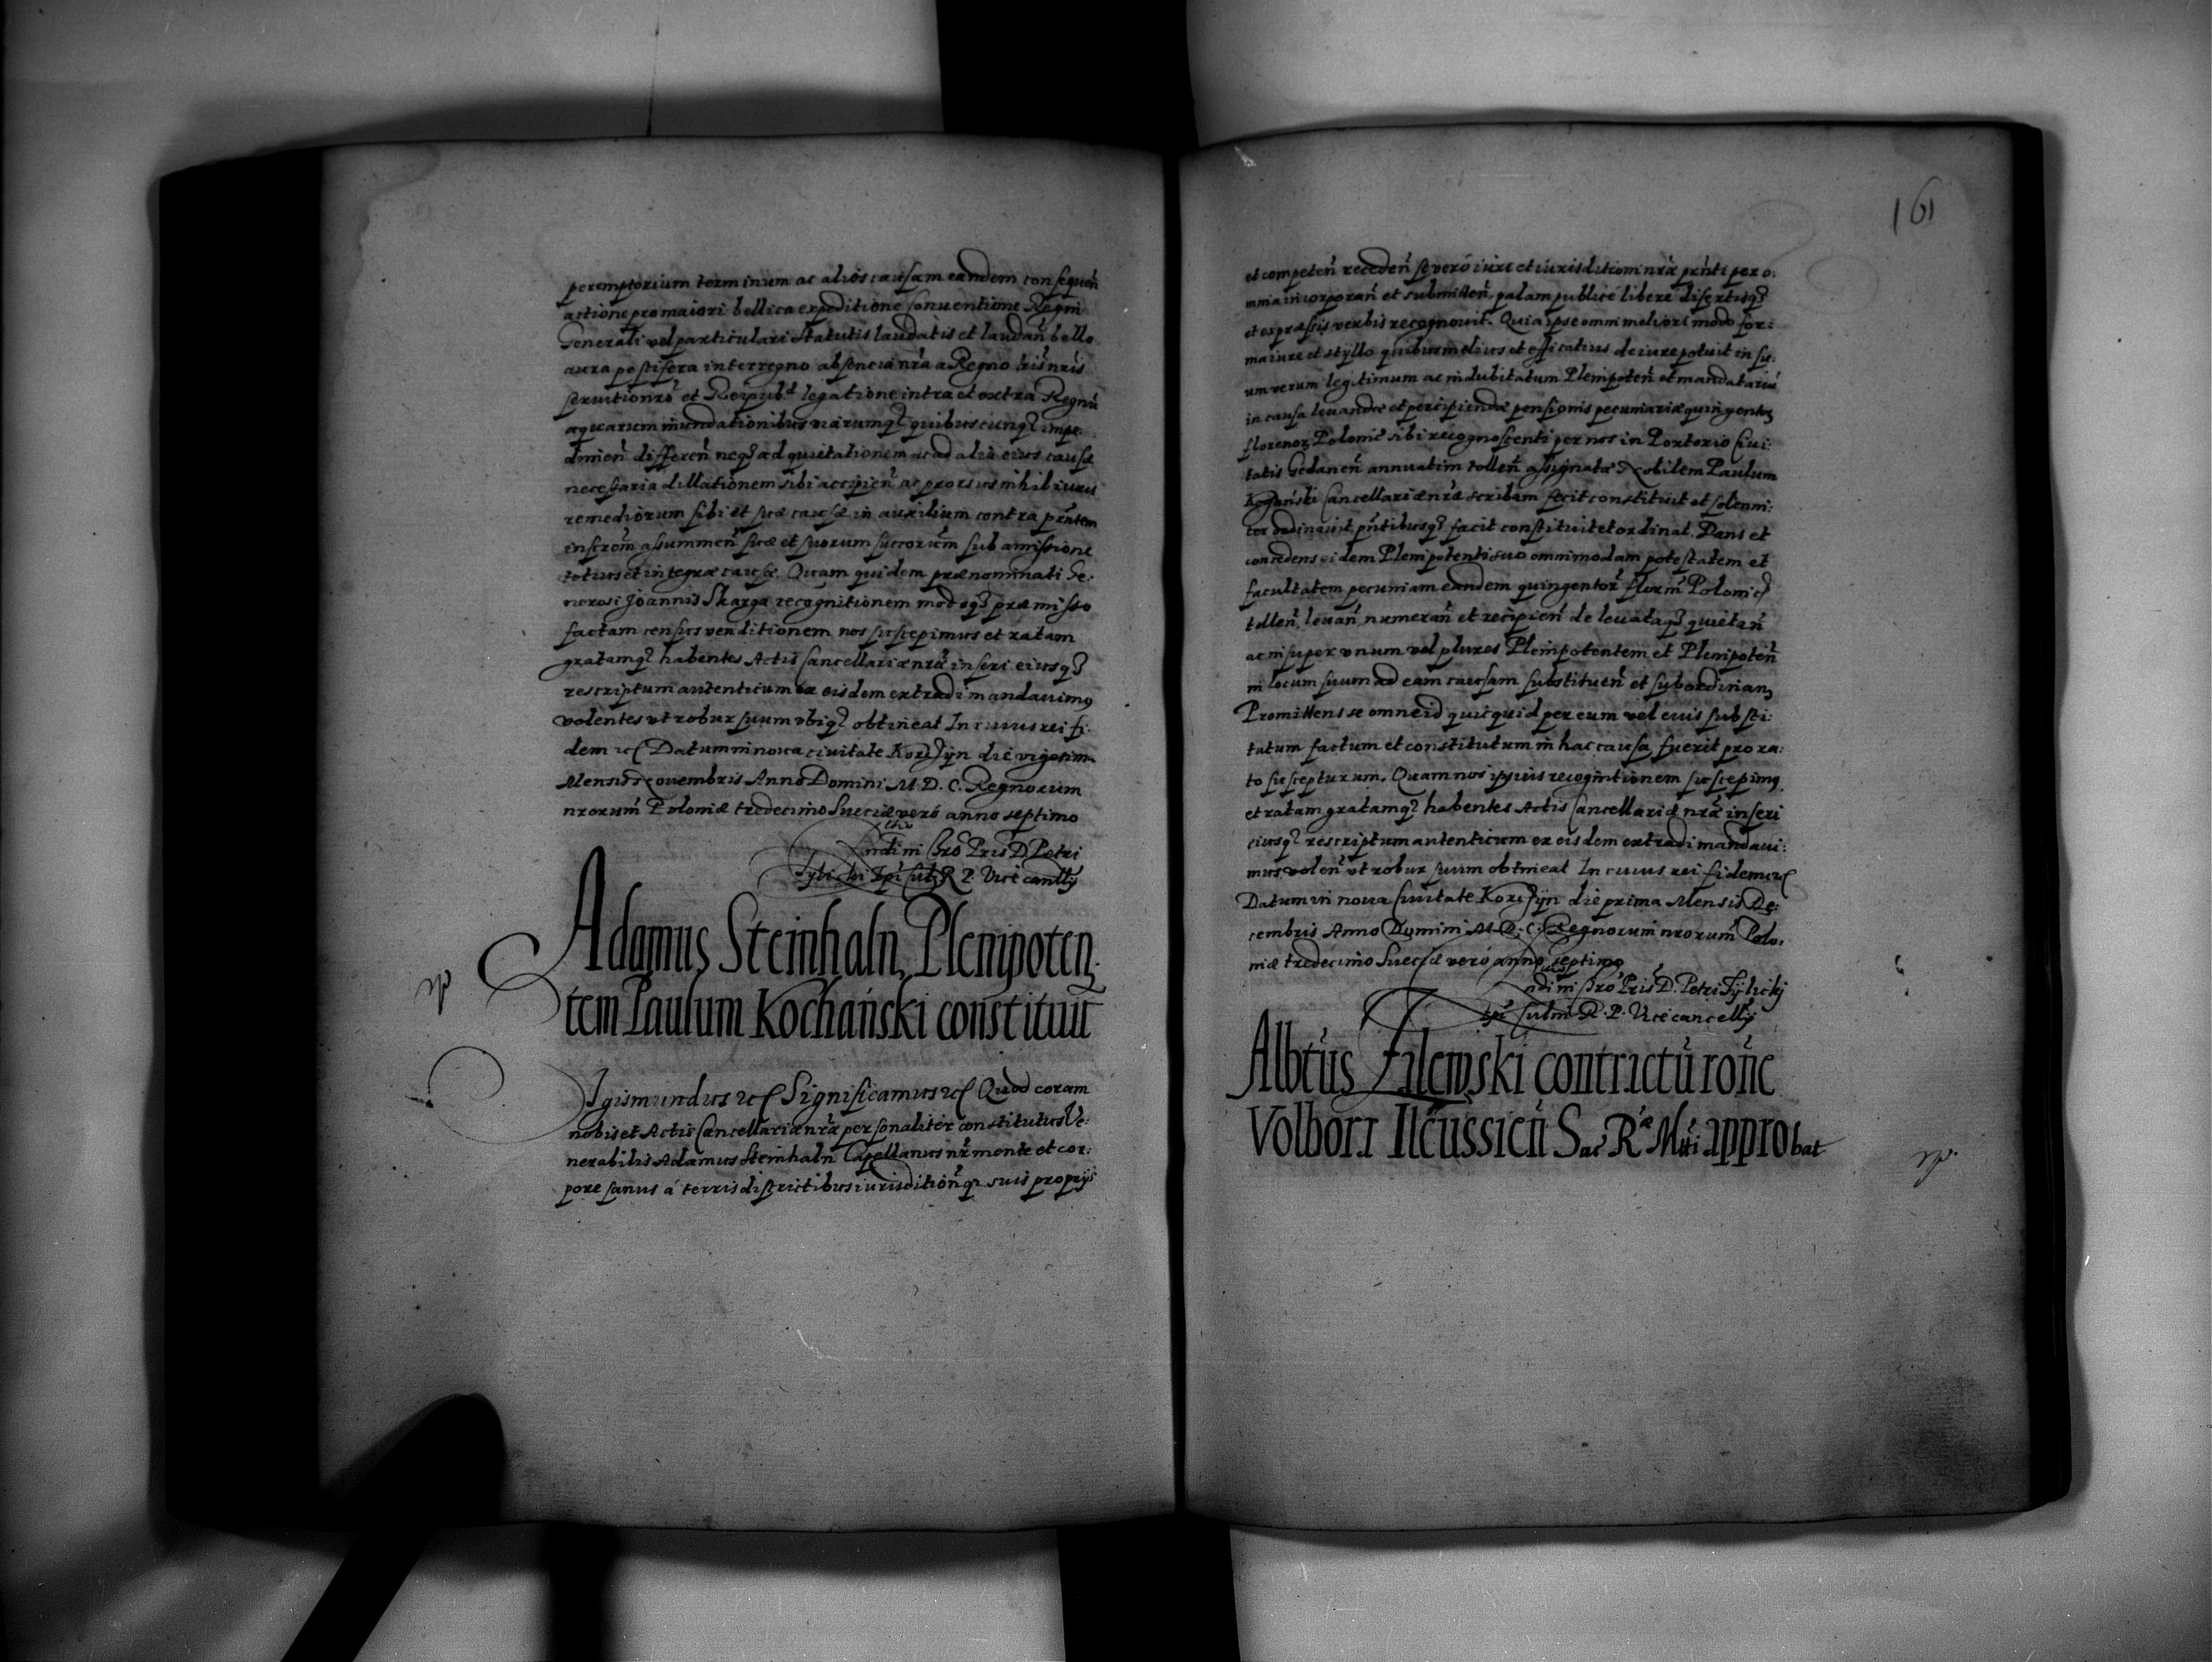 peremptorium terminum ac alios causam eandem consequen̄
actione pro maiori bellica expeditione Conuentione Regni
Generali vel particulari Statutis laudatis et laudan̄ bello
aura pestifera interregno absencia nrā a Regno
seruitio nrō et Reipub. legatione intra et extra Regnū
aquarum inundationibus viarumq̃ quibuscunq̃ impe-
dimen̄ differen̄ neq̃ ad quietationem ac ad alia eius causæ
necessaria dillationem sibi accipien̄ ac prorsus nihil iuris
remediorum sibi et suæ causæ in auxilium contra pñtem
inscrōm assummen̄ suæ et suorum succorum̄ sub amissione
totius et integræ causæ. Quam quidem prænominati Ge:
nerosi Joannis Skarga recognitionem modoq̃ præmisso
factam census venditionem nos suscepimus et ratam
gratamq̃ habentes Actis Cancellariæ nrǣ inseri eiusq̃
rescriptum autenticum ex eisdem extradi mandauimus
volentes vt robur suum vbiq̃ obtineat In cuius rei fi-
dem etc Datum in noua ciuitate Korczyn die vigesima
Mensis Nouembris Anno Domini M. D. C. Regnorum
nrorum̄ Poloniæ tredecimo Sueciæ veró anno septimo
Rndi in Chrō Pris D Petri
Tylicki Epī Cul. R P. Vice cancllij
Adamus Steinhaln, Plenipoten-
tem Paulum Kochański constituit
Sigismundus etc Significamus etc Quod coram
nobis et Actis Cancellariæ nrǣ personaliter constitutus Ve:
nerabilis Adamus Steinhaln Capellanus nr̄ mente et cor:
pore sanus á terris districtibus iurisditionq̃ suis proprijs
161
et competen̄ receden̄ se veró iure et iurisditioni nrǣ pñti per o:
mnia incorporan̄ et submitten̄, palam publice libere disertisq̃
et expressis verbis recognouit. Quia ipse omni meliori modo for:
ma iure et styllo quibus melius et efficatius de iure potuit in su:
um verum legitimum ac indubitatum Plenipoten̄ et mandatariū
in causa leuandæ et percipiendæ pensionis pecuniariæ quingentor
florenor Polonic sibi recognoscenti per nos in Portorio Ciui:
tatis Gedanen̄ annuatim tollen̄ assignatæ Nobilem Paulum
Kochański Cancellariæ nrǣ scribam fecit constituit et solenni:
ter ordinauit pñtibusq̃ facit constituit et ordinat. Dans et
concedens eidem Plenipotenti suo omnimodam potestatem et
facultatem pecuniam eandem quingentor̄ florēn Polonic
tollen̄, leuan̄, numeran̄ et recipien̄ de leuataq̃ quietan̄
ac insuper vnum vel plures Plenipotentem et Plenipoten̄
in locum suum ad eam causam substituen̄ et subordinan
Promittens se omne id quicquid per eum vel eius substi:
tutum factum et constitutum in hac causa fuerit pro ra:
to suscepturum. Quam nos ipsius recognitionem suscepimus
et ratam gratamq̃ habentes Actis Cancellariæ nrǣ inseri
eiusq̃ rescriptum autenticum ex eisdem extradi mandaui:
mus volen̄ vt robur suum obtineat In cuius rei fidem etc
Datum in noua Ciuitate Korczyn die prima Mensis De:
cembris Anno Domini M. D. C. Regnorum nrorum̄ Polo:
niæ tredecimo Sueciæ veró anno septimo
Rndi in Chrō Pris D. Petri Tÿlickj
Epī Culm̄ R. P. Vice cancellij
Albtūs Filewski contrictū ronē
Volborz Ilcussicn̄ Sac Ræ Mtti approbat